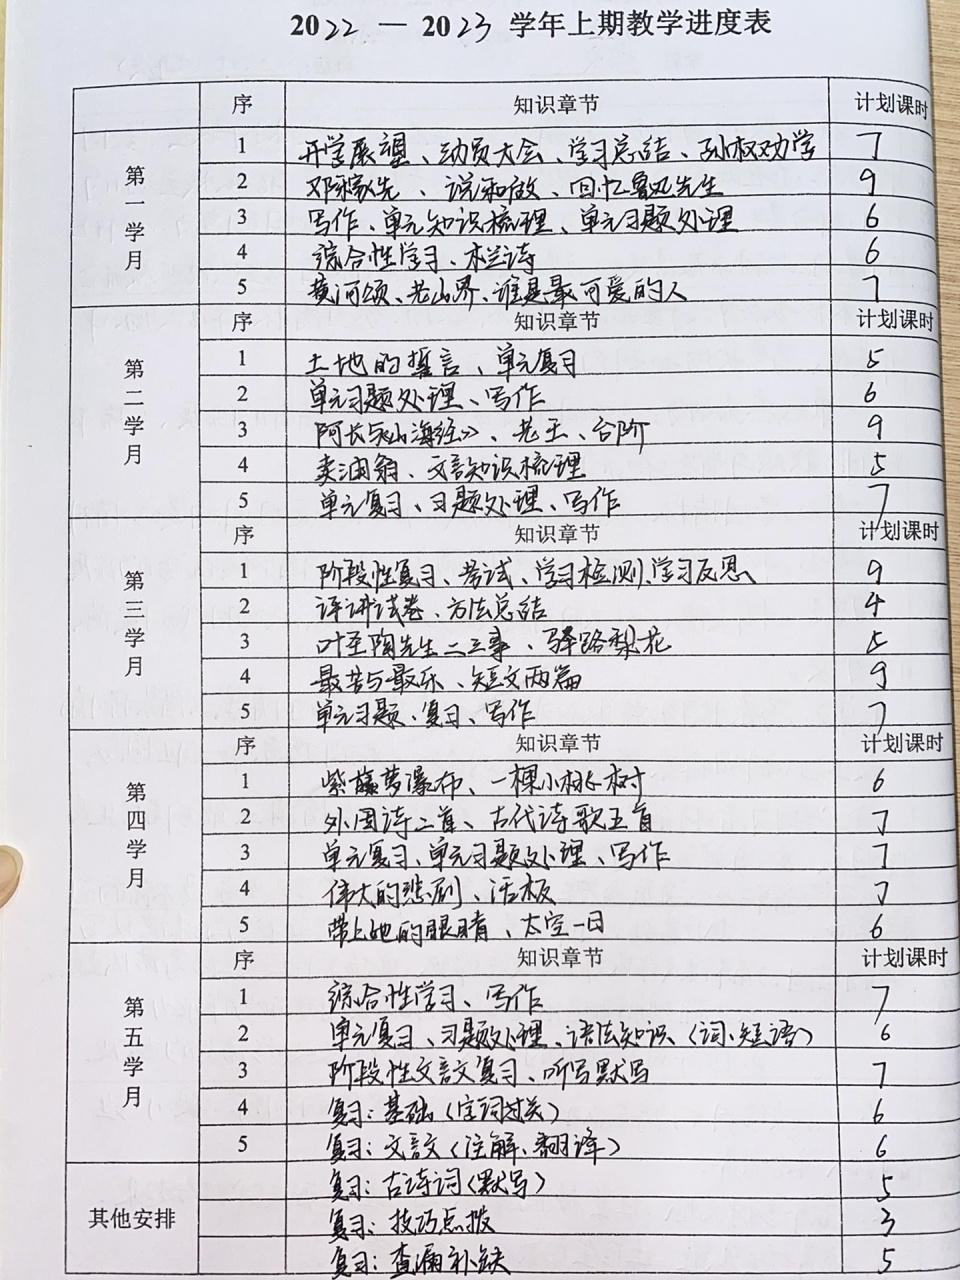 2022 — 2023 学年上期教学进度表
序 知识章节 计划课时
第一学月
1 开学展望、动员大会、学习总结、孙权劝学 7
2 邓稼先、说和做、回忆鲁迅先生 9
3 写作、单元知识梳理、单元习题处理 6
4 综合性学习、木兰诗 6
5 黄河颂、老山界、谁是最可爱的人 7
序 知识章节 计划课时
第二学月
1 土地的誓言、单元复习 5
2 单元习题处理、写作 6
3 阿长与《山海经》、老王、台阶 9
4 卖油翁、文言知识梳理 5
5 单元复习、习题处理、写作 7
序 知识章节 计划课时
第三学月
1 阶段性复习、考试、学习检测、学习反思 9
2 评讲试卷、方法总结 4
3 叶圣陶先生二三事、驿路梨花 5
4 最苦与最乐、短文两篇 9
5 单元习题、复习、写作 7
序 知识章节 计划课时
第四学月
1 紫藤萝瀑布、一棵小桃树 6
2 外国诗二首、古代诗歌五首 7
3 单元复习、单元习题处理、写作 7
4 伟大的悲剧、活板 7
5 带上她的眼睛、太空一日 6
序 知识章节 计划课时
第五学月
1 综合性学习、写作 7
2 单元复习、习题处理、语法知识（词、短语） 6
3 阶段性文言文复习、听写默写 7
4 复习：基础（字词过关） 6
5 复习：文言文（注解、翻译） 6
其他安排
复习：古诗词（默写） 5
复习：技巧点拨 3
复习：查漏补缺 5